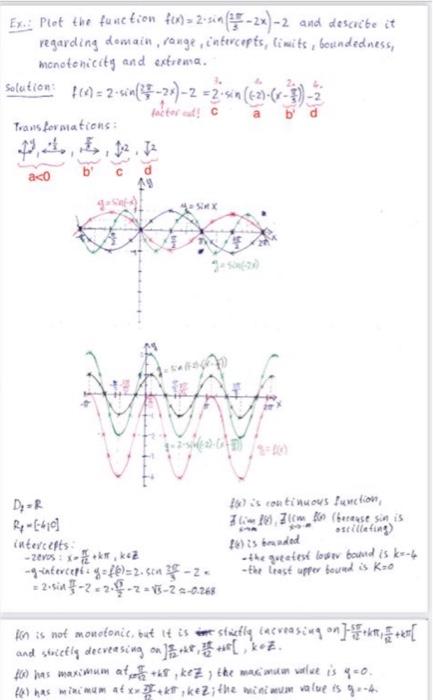 Ex.: Plot the function f(x) = 2·sin(2π/3 - 2x) - 2 and describe it
regarding domain, range, intercepts, limits, boundedness,
monotonicity and extrema.
Solution: f(x) = 2·sin(2π/3 - 2x) - 2 = 2·sin((-2)·(x - π/3)) - 2
3. 1. 2. 4.
factor out! c a b' d
Transformations:
a<0 b' c d
y = sin(-x) y = sin x
y = sin(-2x)
y = sin((-2)·(x - π/3))
y = 2·sin((-2)·(x - π/3)) y = f(x)
D_f = R
R_f = [-4;0]
intercepts:
- zeros: x = π/12 + kπ, k∈Z
- y-intercept: y = f(0) = 2·sin 2π/3 - 2 =
= 2·sin π/3 - 2 = 2·√3/2 - 2 = √3 - 2 ≈ -0.268
f(x) is continuous function,
∄ lim f(x), ∄ lim f(x) (because sin is
oscillating)
f(x) is bounded
- the greatest lower bound is k = -4
- the least upper bound is K = 0
f(x) is not monotonic, but it is strictly increasing on ]-5π/12 + kπ, π/12 + kπ[
and strictly decreasing on ]π/12 + kπ, 7π/12 + kπ[, k∈Z.
f(x) has maximum at π/12 + kπ, k∈Z; the maximum value is y = 0.
f(x) has minimum at x = 7π/12 + kπ, k∈Z; the minimum value is y = -4.